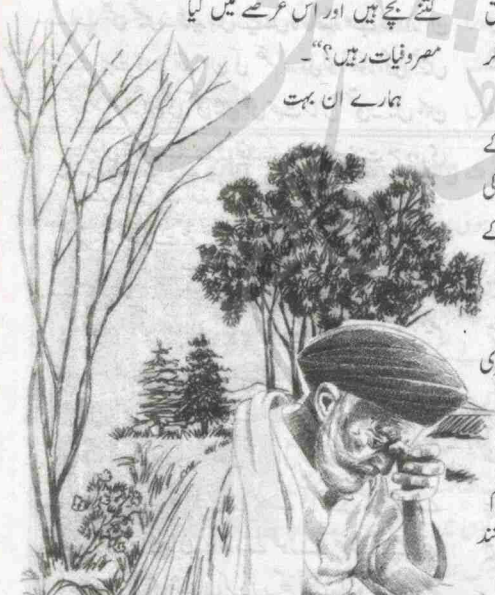 کتنے بچے ہیں اور اس عرصے میں کیا
مصروفیات رہیں؟“۔
ہمارے ان بہت